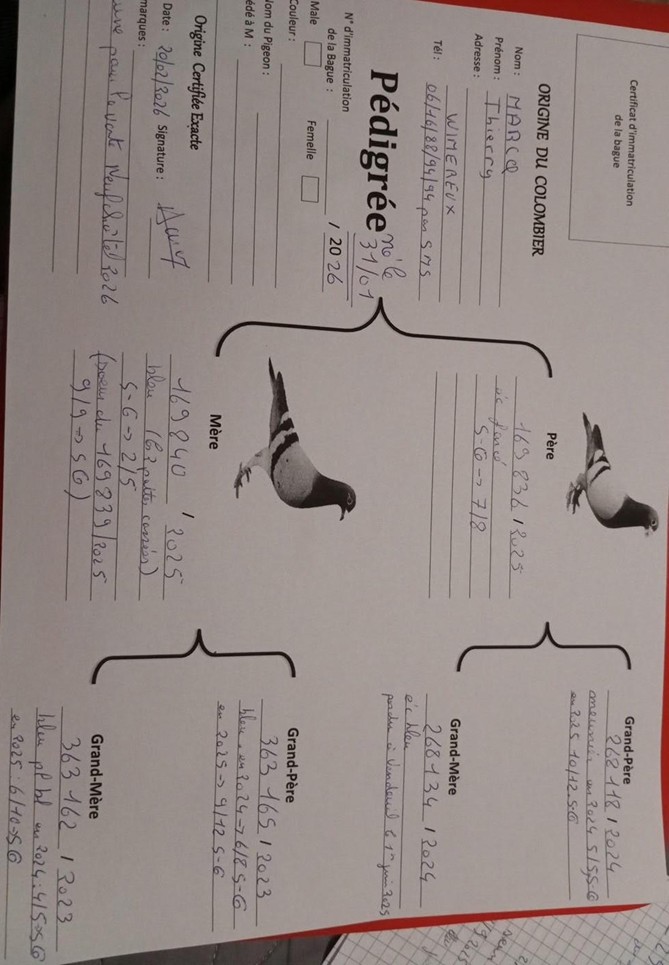 Certificat d'immatriculation
de la bague
ORIGINE DU COLOMBIER
Nom : MARCQ
Prénom : Thierry
Adresse :
WIMEREUX
Tél : 06/16/88/94/94 par SMS
Pédigrée né le
31/01
N° d'immatriculation
de la Bague : / 20 26
Male Femelle
Couleur :
Nom du Pigeon :
édé à M :
Origine Certifiée Exacte
Date : 20/02/2026 Signature :
marques :
une pour la vente Neufchâtel 2026
Père
169 836 / 2025
éc foncé
S-G → 7/8
Mère
169 840 / 2025
bleu (barré)
S-G → 2/5
(soeur du 169 839/2025
9/9 → SG)
Grand-Père
268 118 / 2024
meunier en 2024 5/5 S-G
en 2025 10/12 S-G
Grand-Mère
268 134 / 2024
éc bleu
perdue à Vendeuil le 1er juin 2025
Grand-Père
363 165 / 2023
bleu en 2024 → 6/8 S-G
en 2025 → 9/12 S-G
Grand-Mère
363 162 / 2023
bleu pl bl en 2024 : 4/5 → SG
en 2025 : 6/10 → SG